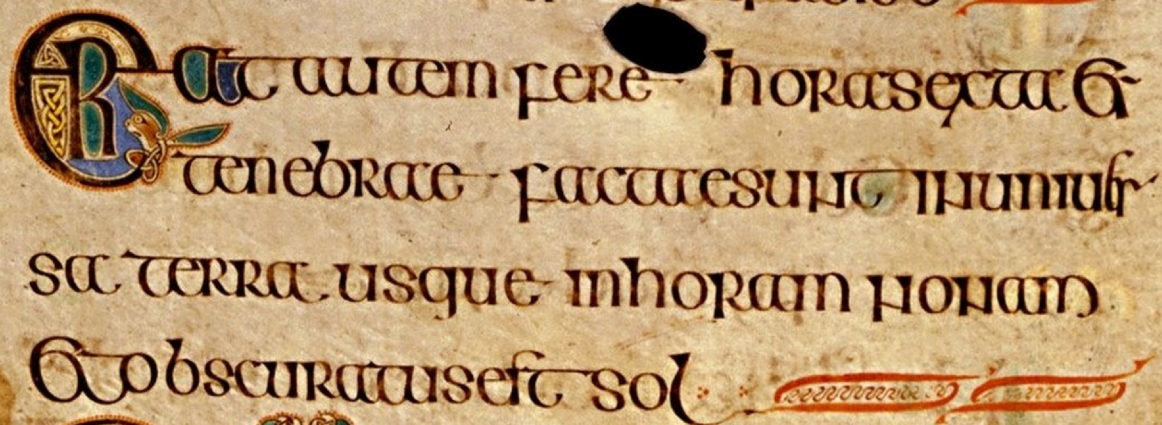 ERat autem fere horasexta et
tenebrae factaesunt inuniuer
sa terra usque inhoram nonam
et obscuratusest sol